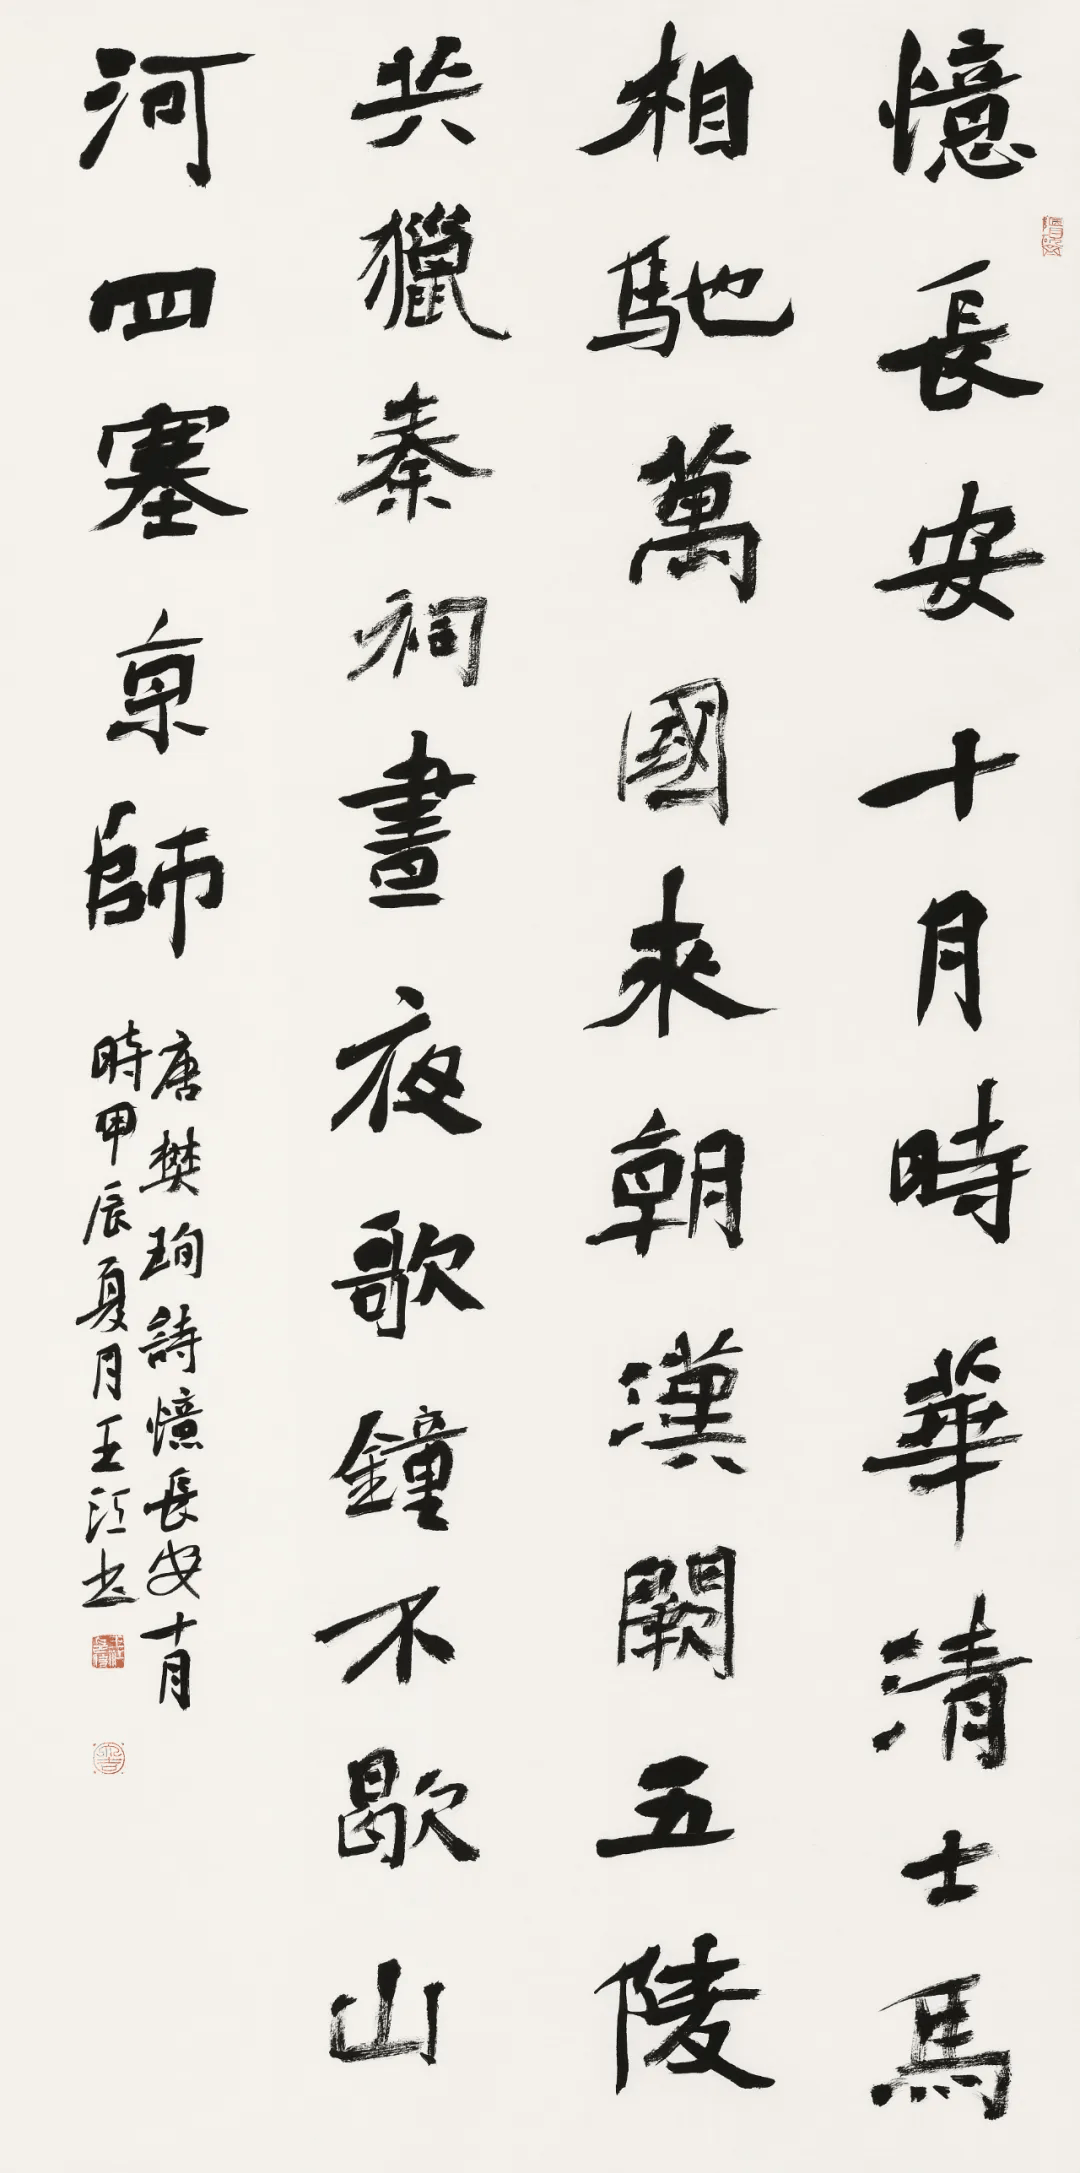 憶長安十月時華清士馬
相馳萬國來朝漢闕五陵
共獵秦祠晝夜歌鐘不歇山
河四塞京師
唐樊珣詩憶長安十月
時甲辰夏月王江書